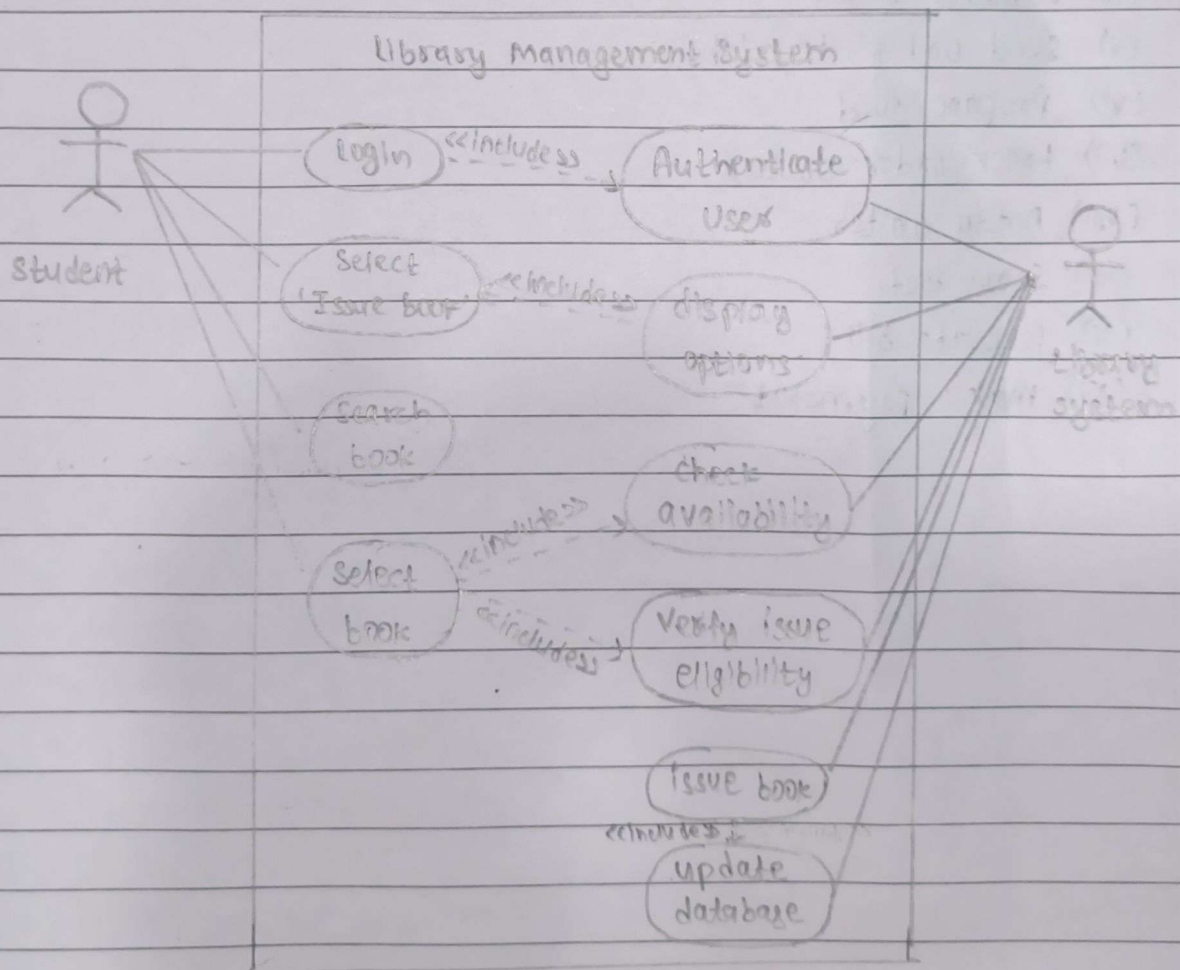 Library Management System
Login
<<include>>
Authenticate
User
Student
Select
'Issue book'
<<include>>
display
options
Library
system
Search
book
check
availability
<<include>>
Select
book
<<include>>
Verify issue
eligibility
issue book
<<include>>
update
database